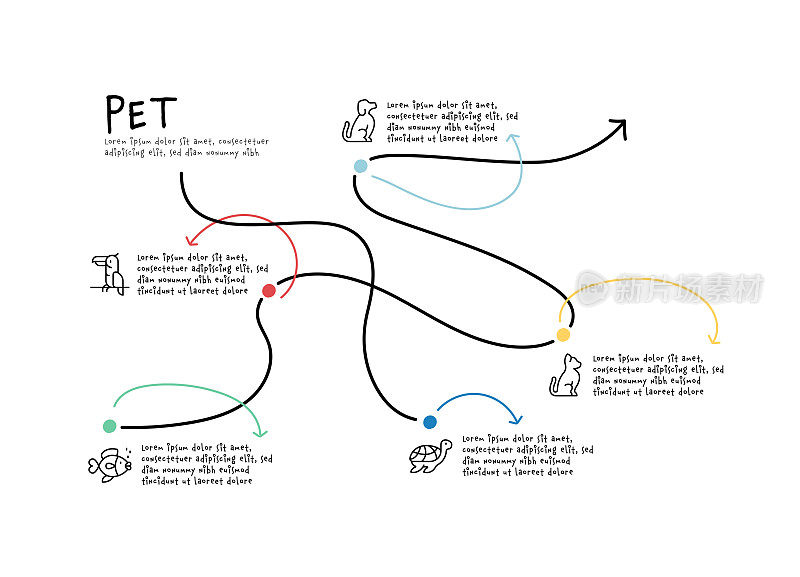 PET
Lorem ipsum dolor sit amet, consectetuer
adipiscing elit, sed diam nonummy nibh
Lorem ipsum dolor sit amet,
consectetuer adipiscing elit, sed
diam nonummy nibh euismod
tincidunt ut laoreet dolore
Lorem ipsum dolor sit amet,
consectetuer adipiscing elit, sed
diam nonummy nibh euismod
tincidunt ut laoreet dolore
new 新片场素材
Lorem ipsum dolor sit amet,
consectetuer adipiscing elit, sed
diam nonummy nibh euismod
tincidunt ut laoreet dolore
Lorem ipsum dolor sit amet,
consectetuer adipiscing elit, sed
diam nonummy nibh euismod
tincidunt ut laoreet dolore
Lorem ipsum dolor sit amet,
consectetuer adipiscing elit, sed
diam nonummy nibh euismod
tincidunt ut laoreet dolore